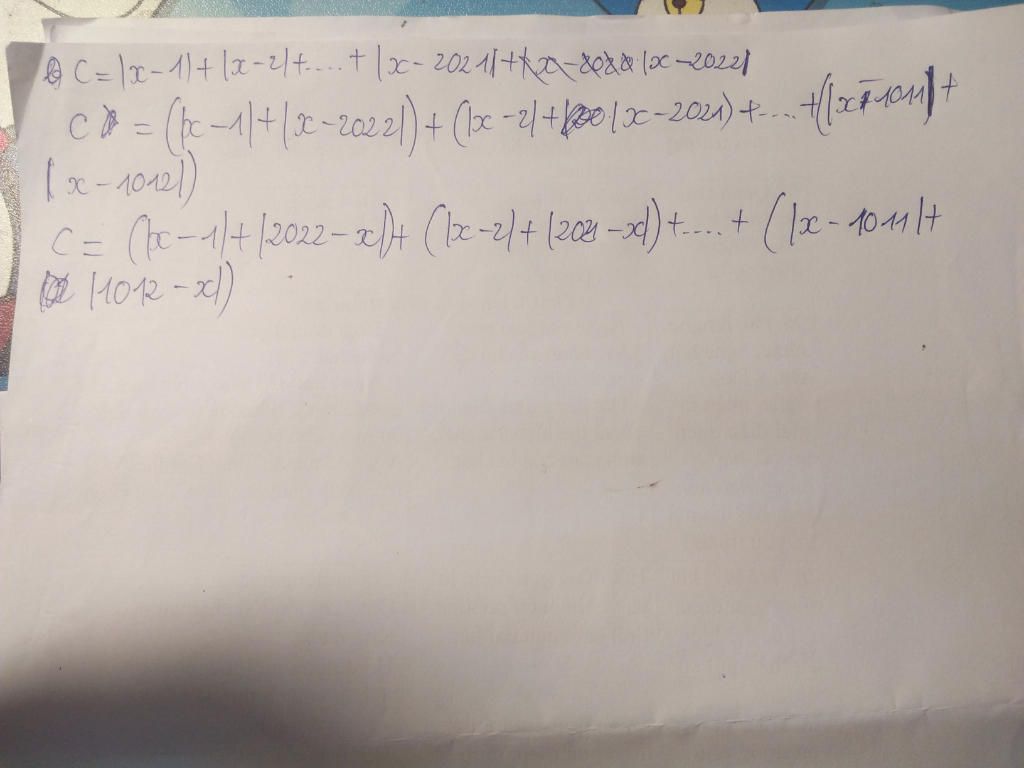 C = |x - 1| + |x - 2| + .... + |x - 2021| + |x - 2022|
C = (|x - 1| + |x - 2022|) + (|x - 2| + |x - 2021) + .... + (|x - 1011| +
|x - 1012|)
C = (|x - 1| + |2022 - x|) + (|x - 2| + |2021 - x|) + .... + (|x - 1011| +
|1012 - x|)